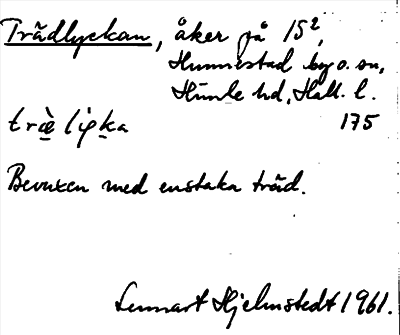 Trädlyckan, åker på 15²,
Hunnestad by o. sn,
Himle hd, Hall. l.
træ̀ lỳka 175
Bevuxen med enstaka träd.
Lennart Hjelmstedt 1961.